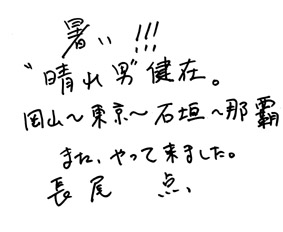 暑い!!!
"晴れ男"健在。
岡山〜東京〜石垣〜那覇
また、やって来ました。
長尾 点、